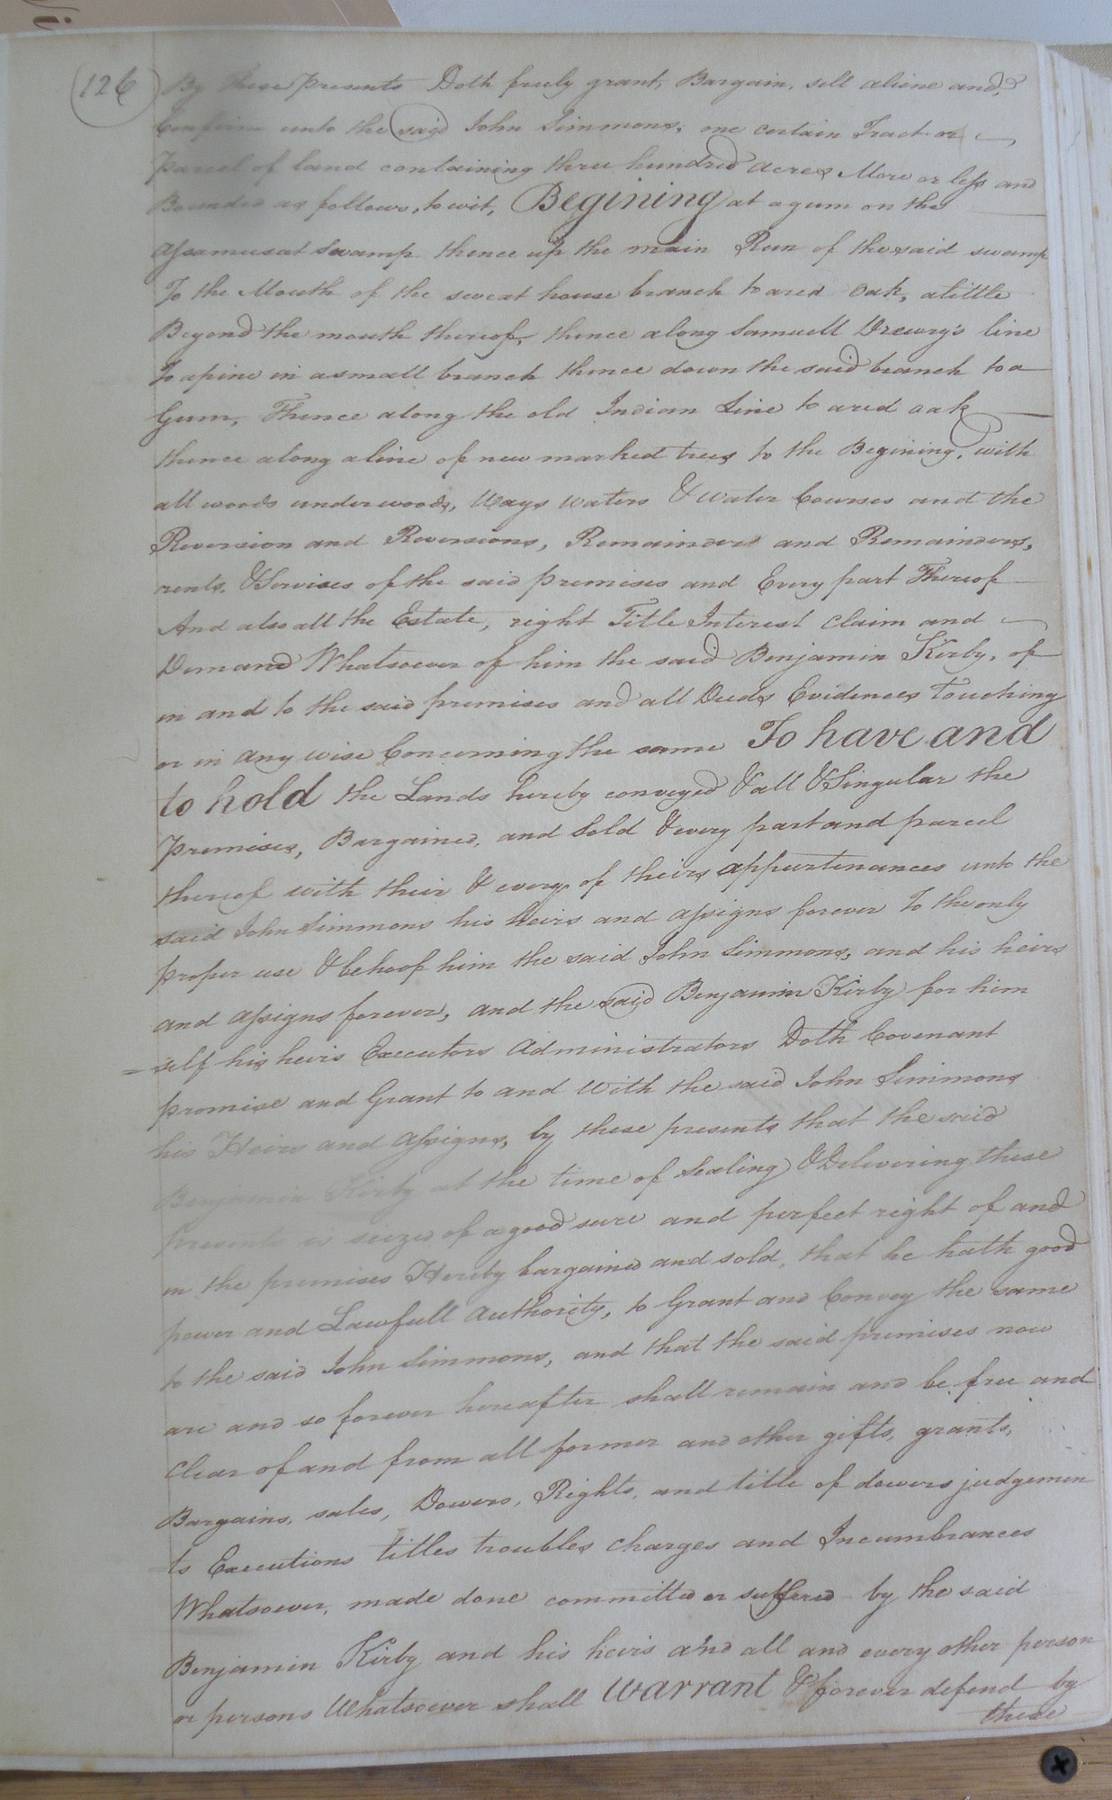 126
By These Presents Doth freely grant, Bargain, sell aliene and,
Confirm unto the said John Simmons, one certain Tract or
Parcel of land containing three hundred acres More or less and
Bounded as follows, to wit, Begining at a gum on the
Assamusat Swamp thence up the main Run of the said swamp
To the Mouth of the sweat house branch to a red oak, a little
Beyond the mouth thereof, thence along Samuell Drewry's line
To a pine in a small branch thence down the said branch to a
Gum, Thence along the old Indian Line to a red oak
thence along a line of new marked trees to the Begining, with
all woods underwoods, Ways waters & water Courses and the
Reversion and Reversions, Remainders and Remainders,
rents, & Servises of the said premises and Every part Thereof
And also all the Estate, right Title Interest Claim and
Demand Whatsoever of him the said Benjamin Kirby, of
in and to the said premises and all Deeds Evidences Touching
or in any wise Concerning the same To have and
to hold the Lands hereby conveyed & all & Singular the
Premises, Bargained, and Sold & every part and parcel
thereof with their & every of theirs appurtenances unto the
said John Simmons his heirs and assigns forever To the only
proper use & behoof him the said John Simmons, and his heirs
and assigns forever, and the said Benjamin Kirby for him
=self his heirs Executors Administrators Doth Covenant
promise and Grant to and With the said John Simmons
his Heirs and Assigns, by these presents that the said
Benjamin Kirby at the time of Sealing & Delivering these
Presents is seized of a good sure and perfect right of and
in the premises Hereby bargained and sold, that he hath good
power and Lawfull authority, to Grant and Convey the same
to the said John Simmons, and that the said premises now
are and so forever hereafter shall remain and be free and
Clear of and from all former and other gifts, grants,
Bargains, sales, Dowers, Rights, and title of dowers judgemen
ts Executions titles troubles charges and Incumbrances
Whatsoever, made done committed or suffered by the said
Benjamin Kirby and his heirs and all and every other person
or persons Whatsoever shall Warrant & forever defend by
these